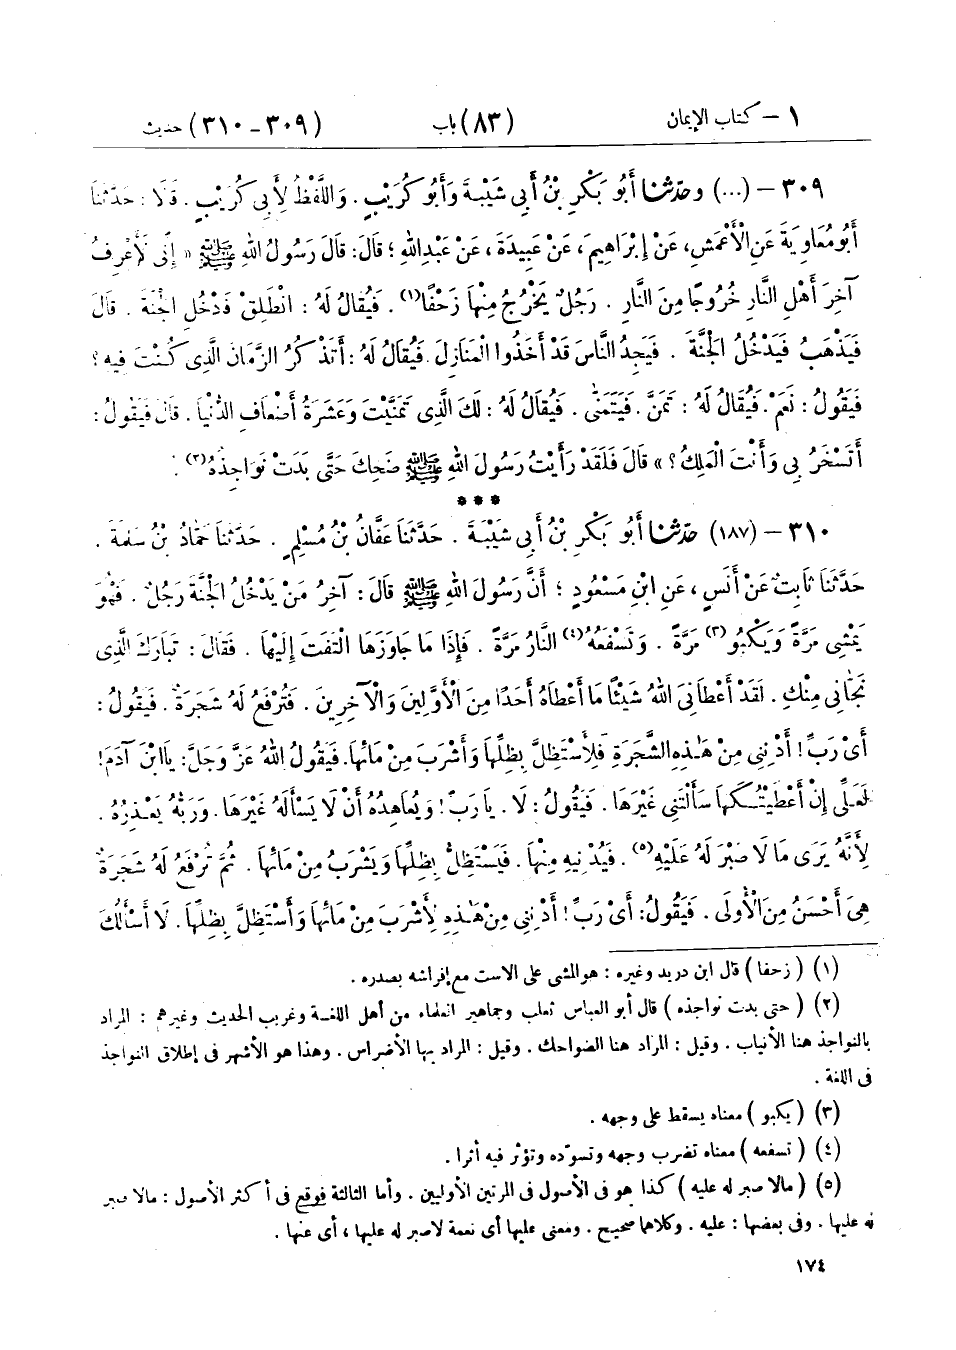 ١ - كتاب الإيمان (٨٣) باب (٣٠٩ - ٣١٠) حديث
٣٠٩ - (...) وحَدَّثَنَا أَبُو بَكْرِ بْنُ أَبِي شَيْبَةَ وَأَبُو كُرَيْبٍ. وَاللَّفْظُ لِأَبِي كُرَيْبٍ. قَالَا: حَدَّثَنَا
أَبُو مُعَاوِيَةَ عَنِ الْأَعْمَشِ، عَنْ إِبْرَاهِيمَ، عَنْ عَبِيدَةَ، عَنْ عَبْدِ اللهِ؛ قَالَ: قَالَ رَسُولُ اللهِ ﷺ «إِنِّي لَأَعْرِفُ
آخِرَ أَهْلِ النَّارِ خُرُوجًا مِنَ النَّارِ. رَجُلٌ يَخْرُجُ مِنْهَا زَحْفًا(١). فَيُقَالُ لَهُ: انْطَلِقْ فَادْخُلِ الْجَنَّةَ. قَالَ
فَيَذْهَبُ فَيَدْخُلُ الْجَنَّةَ. فَيَجِدُ النَّاسَ قَدْ أَخَذُوا الْمَنَازِلَ. فَيُقَالُ لَهُ: أَتَذْكُرُ الزَّمَانَ الَّذِي كُنْتَ فِيهِ؟
فَيَقُولُ: نَعَمْ. فَيُقَالُ لَهُ: تَمَنَّ. فَيَتَمَنَّى. فَيُقَالُ لَهُ: لَكَ الَّذِي تَمَنَّيْتَ وَعَشَرَةُ أَضْعَافِ الدُّنْيَا. قَالَ فَيَقُولُ:
أَتَسْخَرُ بِي وَأَنْتَ الْمَلِكُ؟» قَالَ فَلَقَدْ رَأَيْتُ رَسُولَ اللهِ ﷺ ضَحِكَ حَتَّى بَدَتْ نَوَاجِذُهُ(٢).
***
٣١٠ - (١٨٧) حَدَّثَنَا أَبُو بَكْرِ بْنُ أَبِي شَيْبَةَ. حَدَّثَنَا عَفَّانُ بْنُ مُسْلِمٍ. حَدَّثَنَا حَمَّادُ بْنُ سَلَمَةَ.
حَدَّثَنَا ثَابِتٌ عَنْ أَنَسٍ، عَنِ ابْنِ مَسْعُودٍ؛ أَنَّ رَسُولَ اللهِ ﷺ قَالَ: آخِرُ مَنْ يَدْخُلُ الْجَنَّةَ رَجُلٌ. فَهُوَ
يَمْشِي مَرَّةً وَيَكْبُو(٣) مَرَّةً. وَتَسْفَعُهُ(٤) النَّارُ مَرَّةً. فَإِذَا مَا جَاوَزَهَا الْتَفَتَ إِلَيْهَا. فَقَالَ: تَبَارَكَ الَّذِي
نَجَّانِي مِنْكِ. لَقَدْ أَعْطَانِيَ اللهُ شَيْئًا مَا أَعْطَاهُ أَحَدًا مِنَ الْأَوَّلِينَ وَالْآخِرِينَ. فَتُرْفَعُ لَهُ شَجَرَةٌ. فَيَقُولُ:
أَيْ رَبِّ! أَدْنِنِي مِنْ هَذِهِ الشَّجَرَةِ فَلِأَسْتَظِلَّ بِظِلِّهَا وَأَشْرَبَ مِنْ مَائِهَا. فَيَقُولُ اللهُ عَزَّ وَجَلَّ: يَا ابْنَ آدَمَ!
لَعَلِّي إِنْ أَعْطَيْتُكَهَا سَأَلْتَنِي غَيْرَهَا. فَيَقُولُ: لَا. يَا رَبِّ! وَيُعَاهِدُهُ أَنْ لَا يَسْأَلَهُ غَيْرَهَا. وَرَبُّهُ يَعْذِرُهُ.
لِأَنَّهُ يَرَى مَا لَا صَبْرَ لَهُ عَلَيْهِ(٥). فَيُدْنِيهِ مِنْهَا. فَيَسْتَظِلُّ بِظِلِّهَا وَيَشْرَبُ مِنْ مَائِهَا. ثُمَّ تُرْفَعُ لَهُ شَجَرَةٌ
هِيَ أَحْسَنُ مِنَ الْأُولَى. فَيَقُولُ: أَيْ رَبِّ! أَدْنِنِي مِنْ هَذِهِ لِأَشْرَبَ مِنْ مَائِهَا وَأَسْتَظِلَّ بِظِلِّهَا. لَا أَسْأَلُكَ
(١) (زحفا) قال ابن دريد وغيره: هو المشي على الاست مع إفراشه بصدره.
(٢) (حتى بدت نواجذه) قال أبو العباس ثعلب وجماهير العلماء من أهل اللغة وغريب الحديث وغيرهم: المراد
بالنواجذ هنا الأنياب. وقيل: المراد هنا الضواحك. وقيل: المراد بها الأضراس. وهذا هو الأشهر في إطلاق النواجذ
في اللغة.
(٣) (يكبو) معناه يسقط على وجهه.
(٤) (تسفعه) معناه تضرب وجهه وتسوّده وتؤثر فيه أثرا.
(٥) (مالا صبر له عليه) كذا هو في الأصول في المرتين الأوليين. وأما الثالثة فوقع في أكثر الأصول: مالا صبر
له عليها. وفي بعضها: عليه. وكلاهما صحيح. ومعنى عليها أي نعمة لا صبر له عليها، أي عنها.
١٧٤